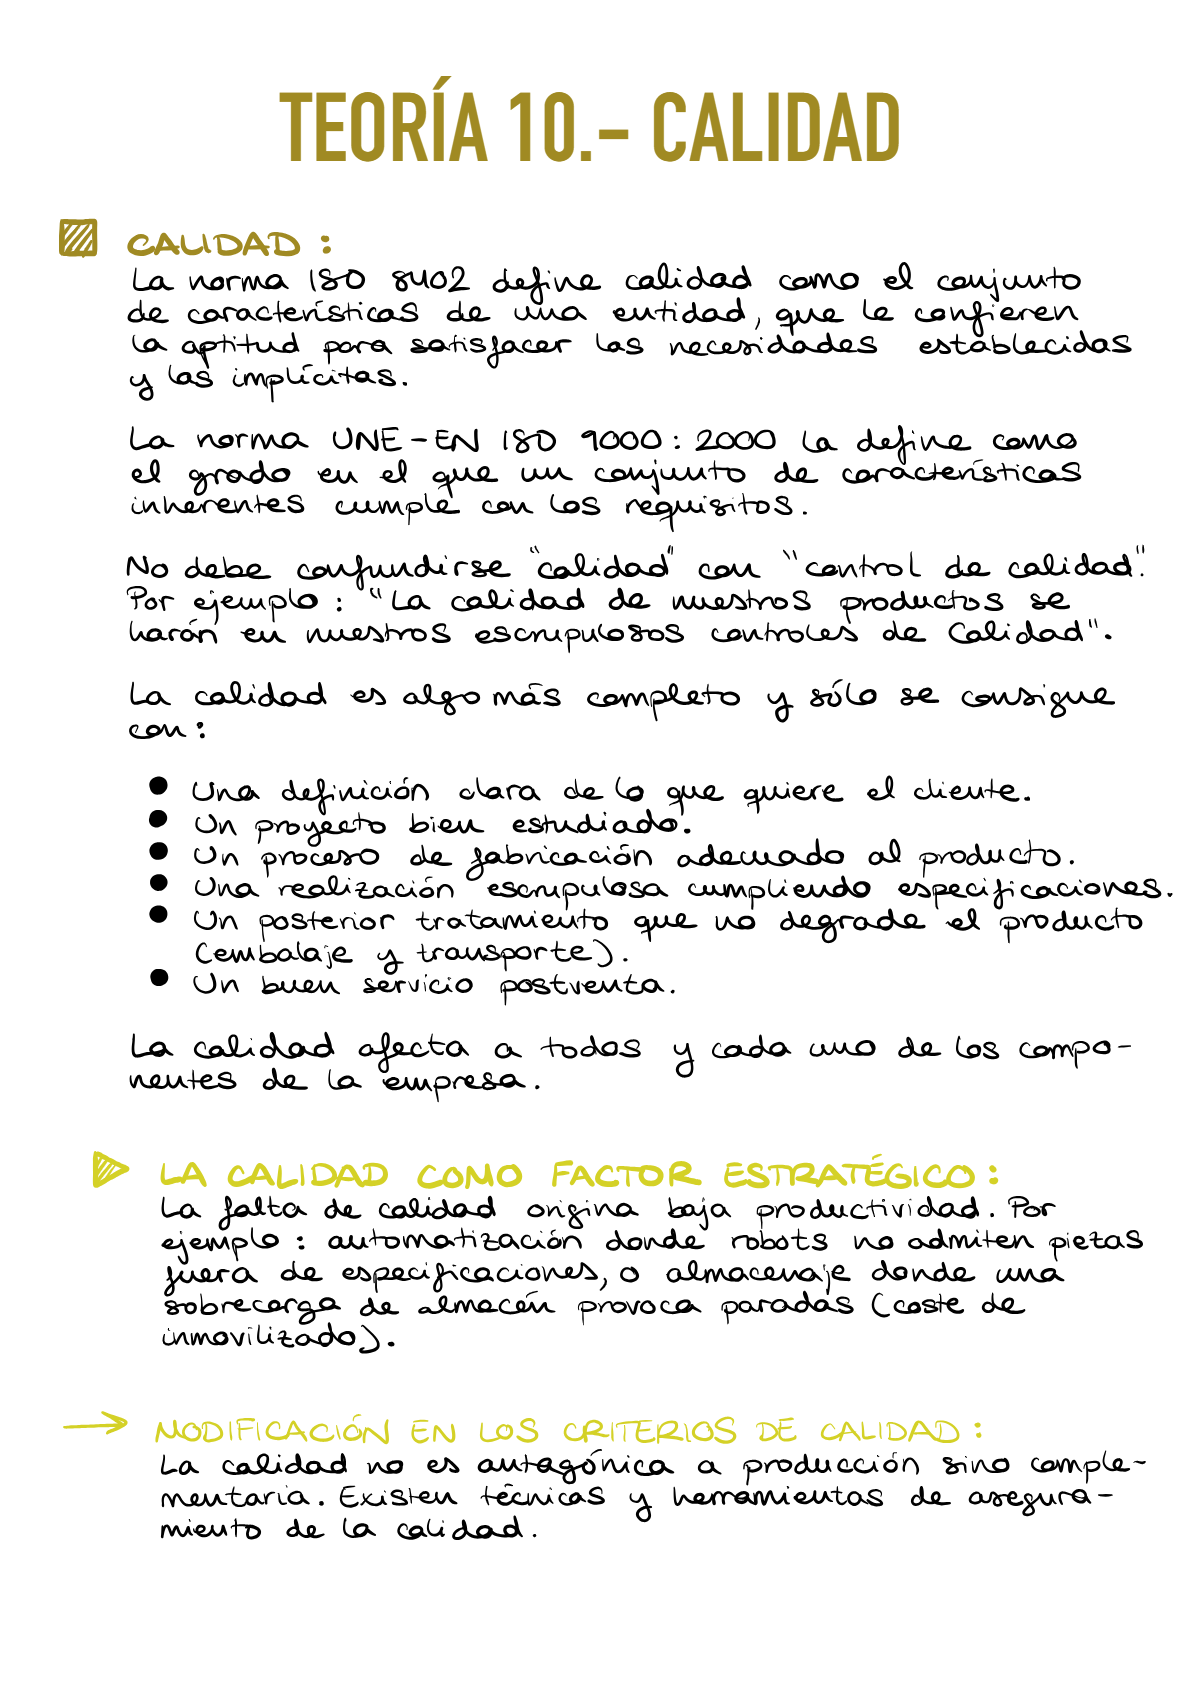 TEORÍA 10.- CALIDAD
CALIDAD :
La norma ISO 8402 define calidad como el conjunto
de características de una entidad, que le confieren
la aptitud para satisfacer las necesidades establecidas
y las implícitas.
La norma UNE-EN ISO 9000: 2000 la define como
el grado en el que un conjunto de características
inherentes cumple con los requisitos.
No debe confundirse "calidad" con "control de calidad".
Por ejemplo : "La calidad de nuestros productos se
harán en nuestros escrupulosos controles de Calidad".
La calidad es algo más completo y sólo se consigue
con :
● Una definición clara de lo que quiere el cliente.
● Un proyecto bien estudiado.
● Un proceso de fabricación adecuado al producto.
● Una realización escrupulosa cumpliendo especificaciones.
● Un posterior tratamiento que no degrade el producto
(embalaje y transporte).
● Un buen servicio postventa.
La calidad afecta a todos y cada uno de los compo-
nentes de la empresa.
LA CALIDAD COMO FACTOR ESTRATÉGICO :
La falta de calidad origina baja productividad. Por
ejemplo : automatización donde robots no admiten piezas
fuera de especificaciones, o almacenaje donde una
sobrecarga de almacén provoca paradas (coste de
inmovilizado).
→ MODIFICACIÓN EN LOS CRITERIOS DE CALIDAD :
La calidad no es antagónica a producción sino comple-
mentaria. Existen técnicas y herramientas de asegura-
miento de la calidad.